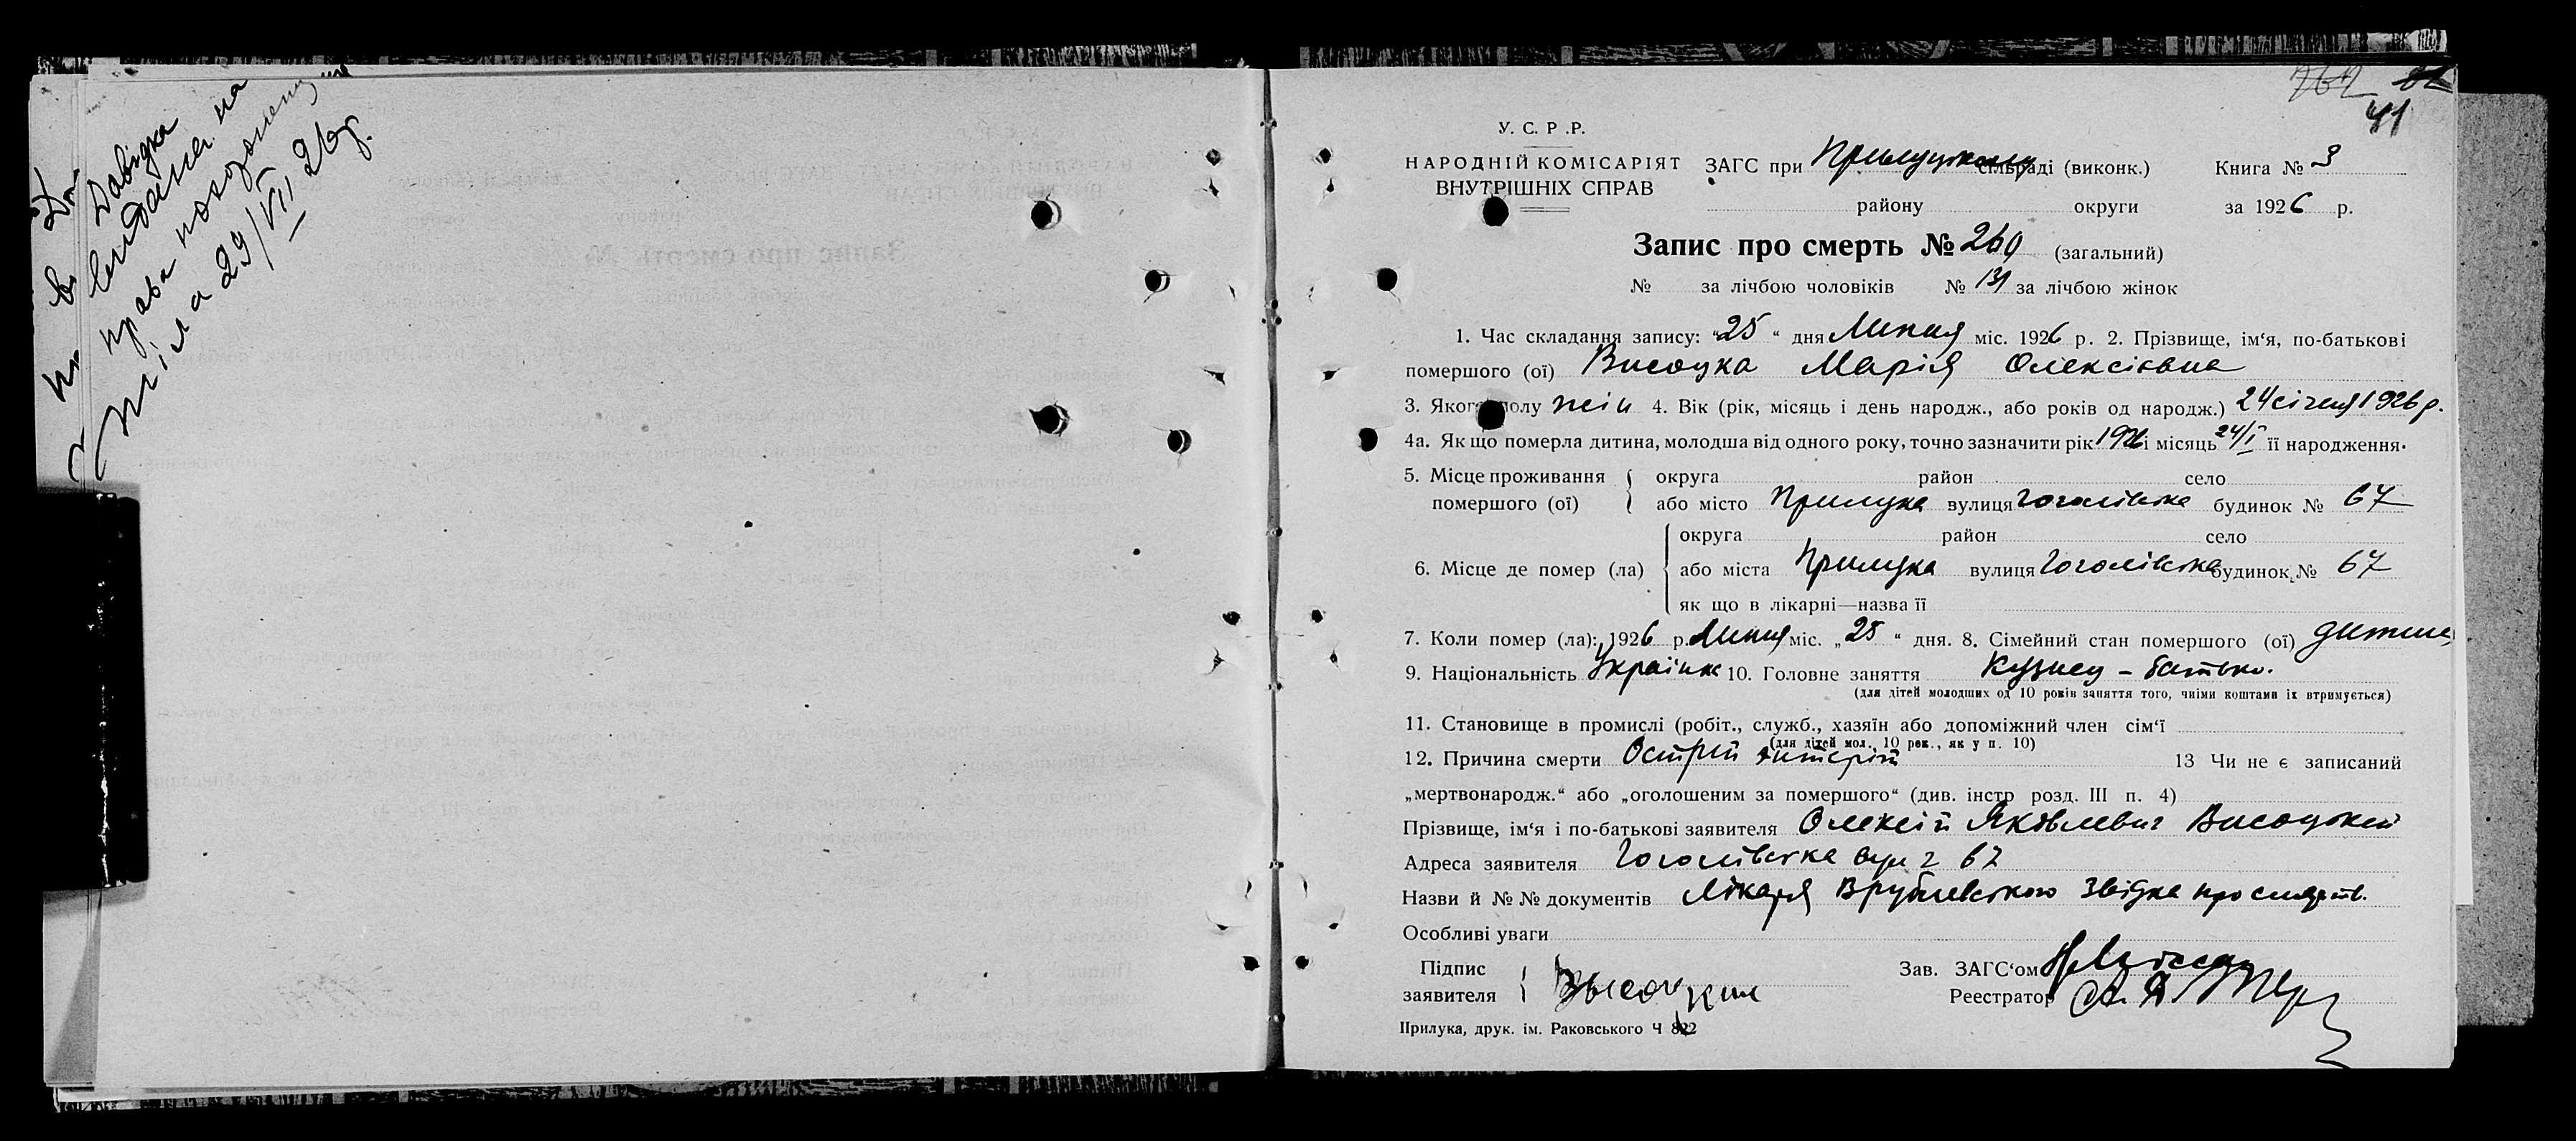 Довідка
видана на
права похорону
тіла 29/VII 26 р.
41
У. С. Р .Р.
НАРОДНІЙ КОМІСАРІЯТ
ВНУТРІШНІХ СПРАВ
ЗАГС при Прилуцькому сільраді (виконк.) Книга № 3
району округи за 1926 р.
Запис про смерть № 260 (загальний)
№ за лічбою чоловіків № 131 за лічбою жінок
1. Час складання запису: “25 “ дня Липня міс. 1926 р. 2. Прізвище, ім‘я, по-батькові
помершого (ої) Висоцка Марія Олексіївна
3. Якого полу жін 4. Вік (рік, місяць і день народж., або років од народж.) 24 січня 1926 р.
4а. Як що померла дитина, молодша від одного року, точно зазначити рік 1926 і місяць 24/I її народження.
5. Місце проживання округа район село
помершого (ої) або місто Прилука вулиця Гоголівська будинок № 67
округа район село
6. Місце де помер (ла) або міста Прилука вулиця Гоголівська будинок № 67
як що в лікарні—назва її
7. Коли помер (ла): 1926 р. Липня міс. „25 “ дня. 8. Сімейний стан помершого (ої) дитина
9. Національність Українк 10. Головне заняття Кузнец – батько.
(для дітей молодших од 10 років заняття того, чиїми коштами їх втримується)
11. Становище в промислі (робіт., служб., хазяїн або допоміжний член сім‘ї
(для дітей мол. 10 рок., як у п. 10)
12. Причина смерти Острий ентеріт 13 Чи не є записаний
„мертвонародж.“ або „оголошеним за помершого“ (див. інстр розд. III п. 4)
Прізвище, ім‘я і по-батькові заявителя Олексій Яковлевич Висоцький
Адреса заявителя Гоголівська вул 67
Назви й №№ документів Лікаря Врублевського звідка про смерть.
Особливі уваги
Підпис
заявителя Высоцкий
Зав. ЗАГС‘ом
Реестратор
Прилука, друк. ім. Раковського Ч 822